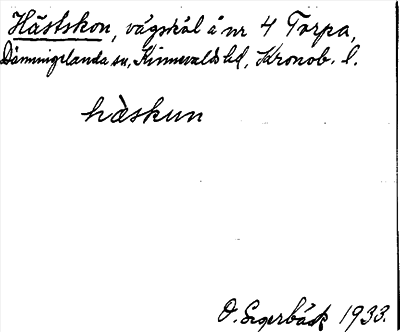 Hästskon, vägskäl å nr 4 Torpa,
Dänningelanda sn, Kinnevalds hd, Kronob. l.
hàskun
O. Segerbäck 1933.